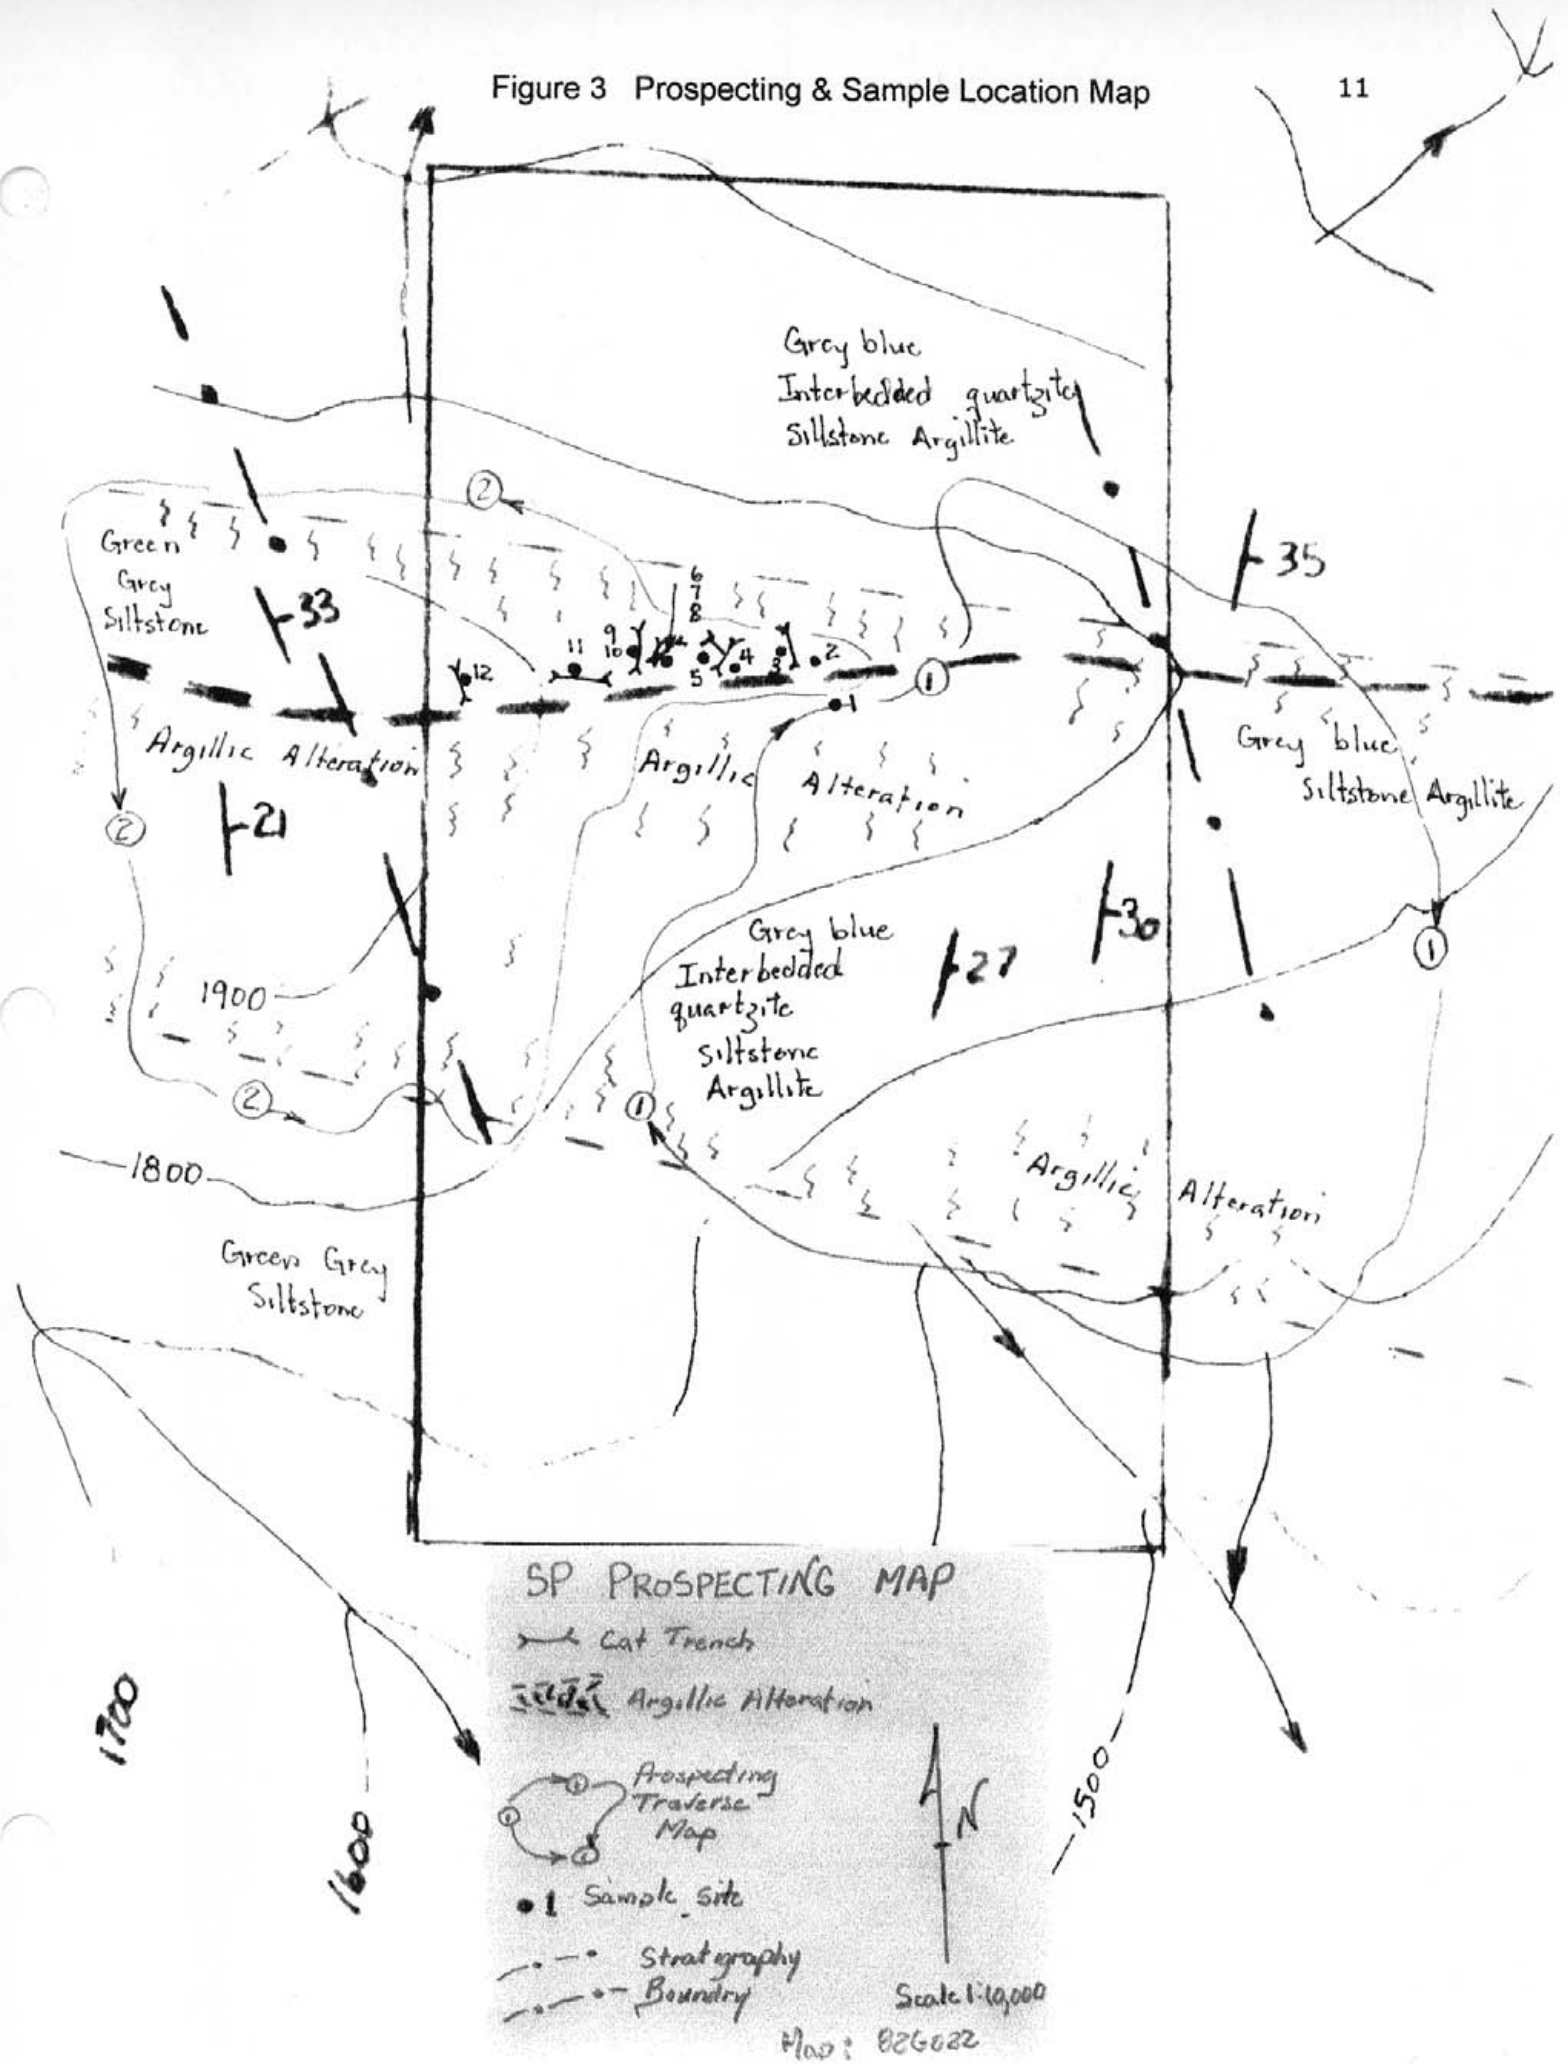 Figure 3 Prospecting & Sample Location Map
11
Grey blue
Interbedded quartzite
Sillstone Argillite
2
Green
Grey
Siltstone
33
35
6
7
8
9
10
11
12
5
4
3
2
1
1
Argillic Alteration
Argillic Alteration
Grey blue
Siltstone Argillite
2
21
Grey blue
Interbedded
quartzite
Siltstone
Argillite
30
27
1
1900
2
1
1800
Argillic Alteration
Green Grey
Siltstone
SP PROSPECTING MAP
Cat Trench
Argillic Alteration
Prospecting
Traverse
Map
1 Sample site
Stratigraphy
Boundry
N
Scale 1:10,000
Map: 82G022
1700
1600
1500